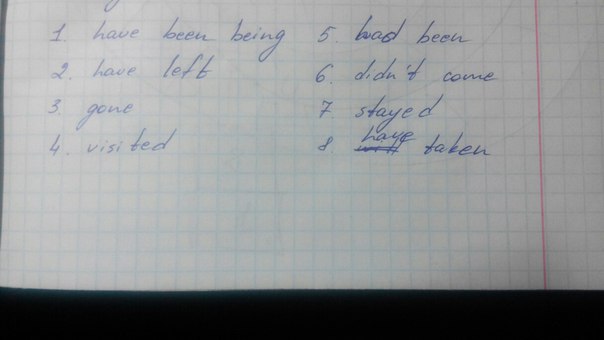 1. have been being
2. have left
3. gone
4. visited
5. had been
6. didn't come
7. stayed
8. have taken